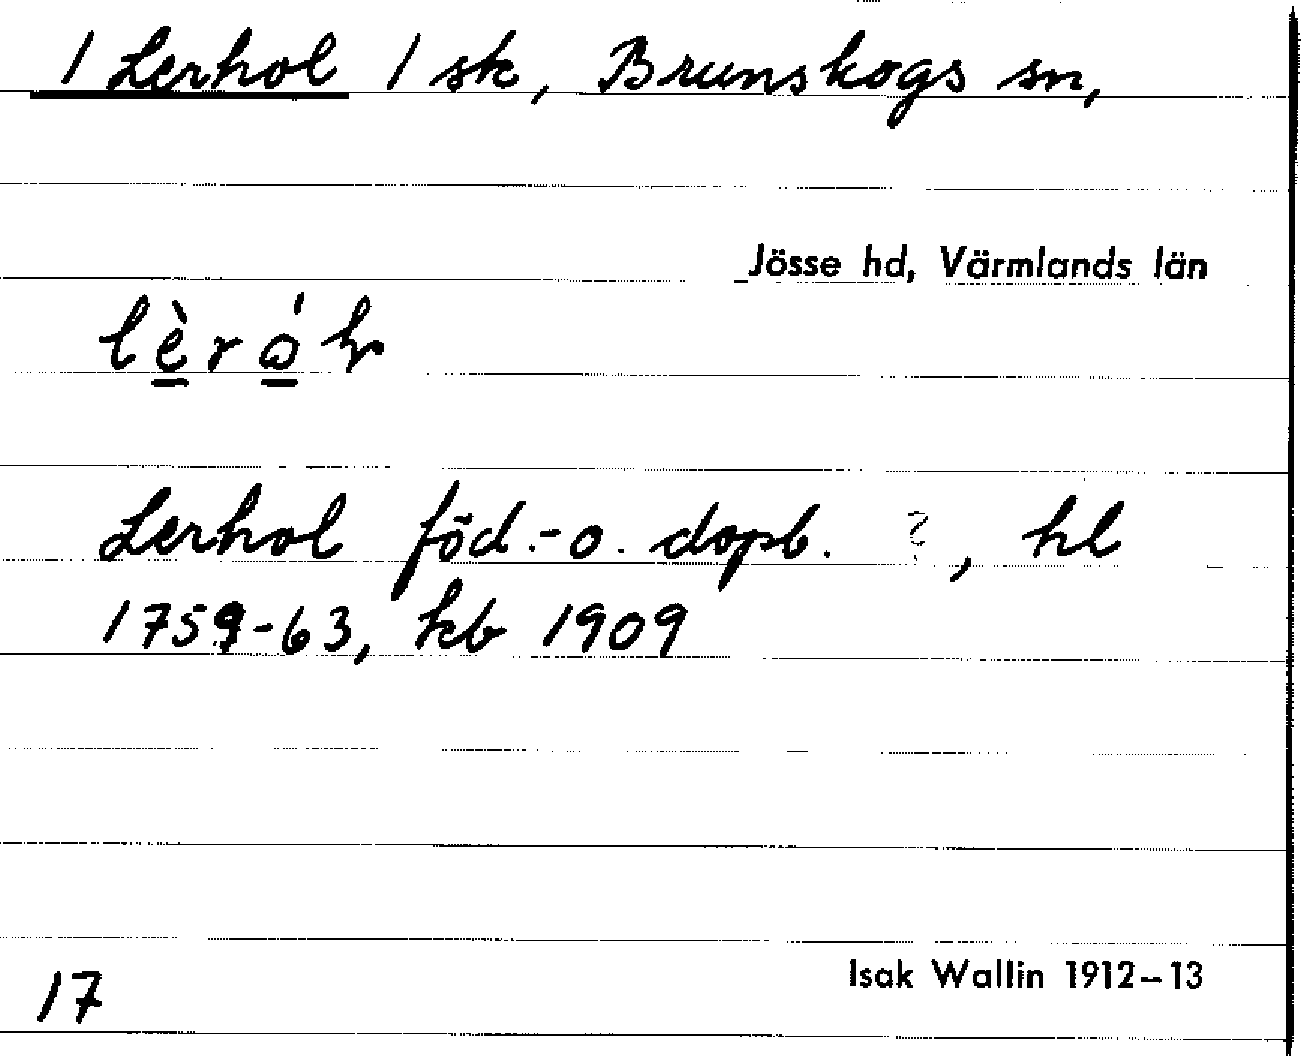 / Lerhol / sk, Brunskogs sn,
Jösse hd, Värmlands län
lèró
Lerhol föd.-o. dopb. ?, hl
1759-63, kb 1909
17
Isak Wallin 1912-13